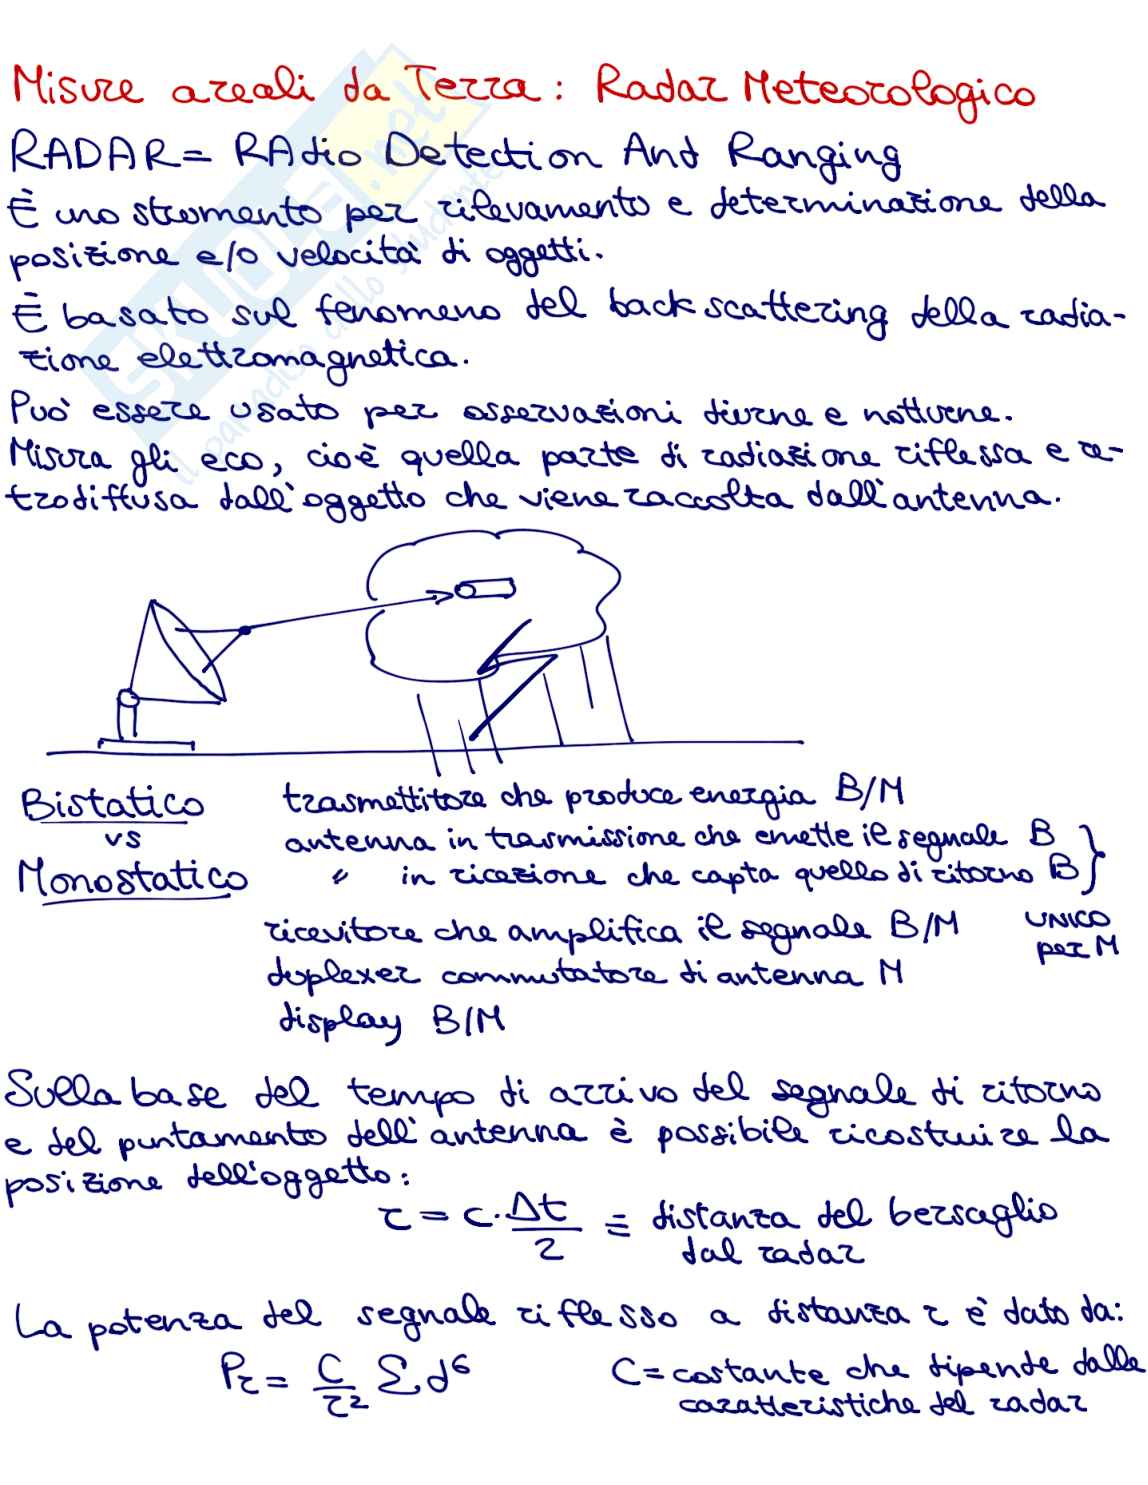 Misure areali da Terra: Radar Meteorologico
RADAR = RAdio Detection And Ranging
È uno strumento per rilevamento e determinazione della
posizione e/o velocità di oggetti.
È basato sul fenomeno del backscattering della radia-
zione elettromagnetica.
Può essere usato per osservazioni diurne e notturne.
Misura gli eco, cioè quella parte di radiazione riflessa e re-
trodiffusa dall'oggetto che viene raccolta dall'antenna.
Bistatico
vs
Monostatico
trasmettitore che produce energia B/M
antenna in trasmissione che emette il segnale B
" in ricezione che capta quello di ritorno B
UNICO
per M
ricevitore che amplifica il segnale B/M
duplexer commutatore di antenna M
display B/M
Sulla base del tempo di arrivo del segnale di ritorno
e del puntamento dell'antenna è possibile ricostruire la
posizione dell'oggetto:
r = c · Δt/2 ≡ distanza del bersaglio
dal radar
La potenza del segnale riflesso a distanza r è dato da:
Pr = C/r² Σ d⁶ C = costante che dipende dalle
caratteristiche del radar
SKUOLA.net
il paradiso dello studente